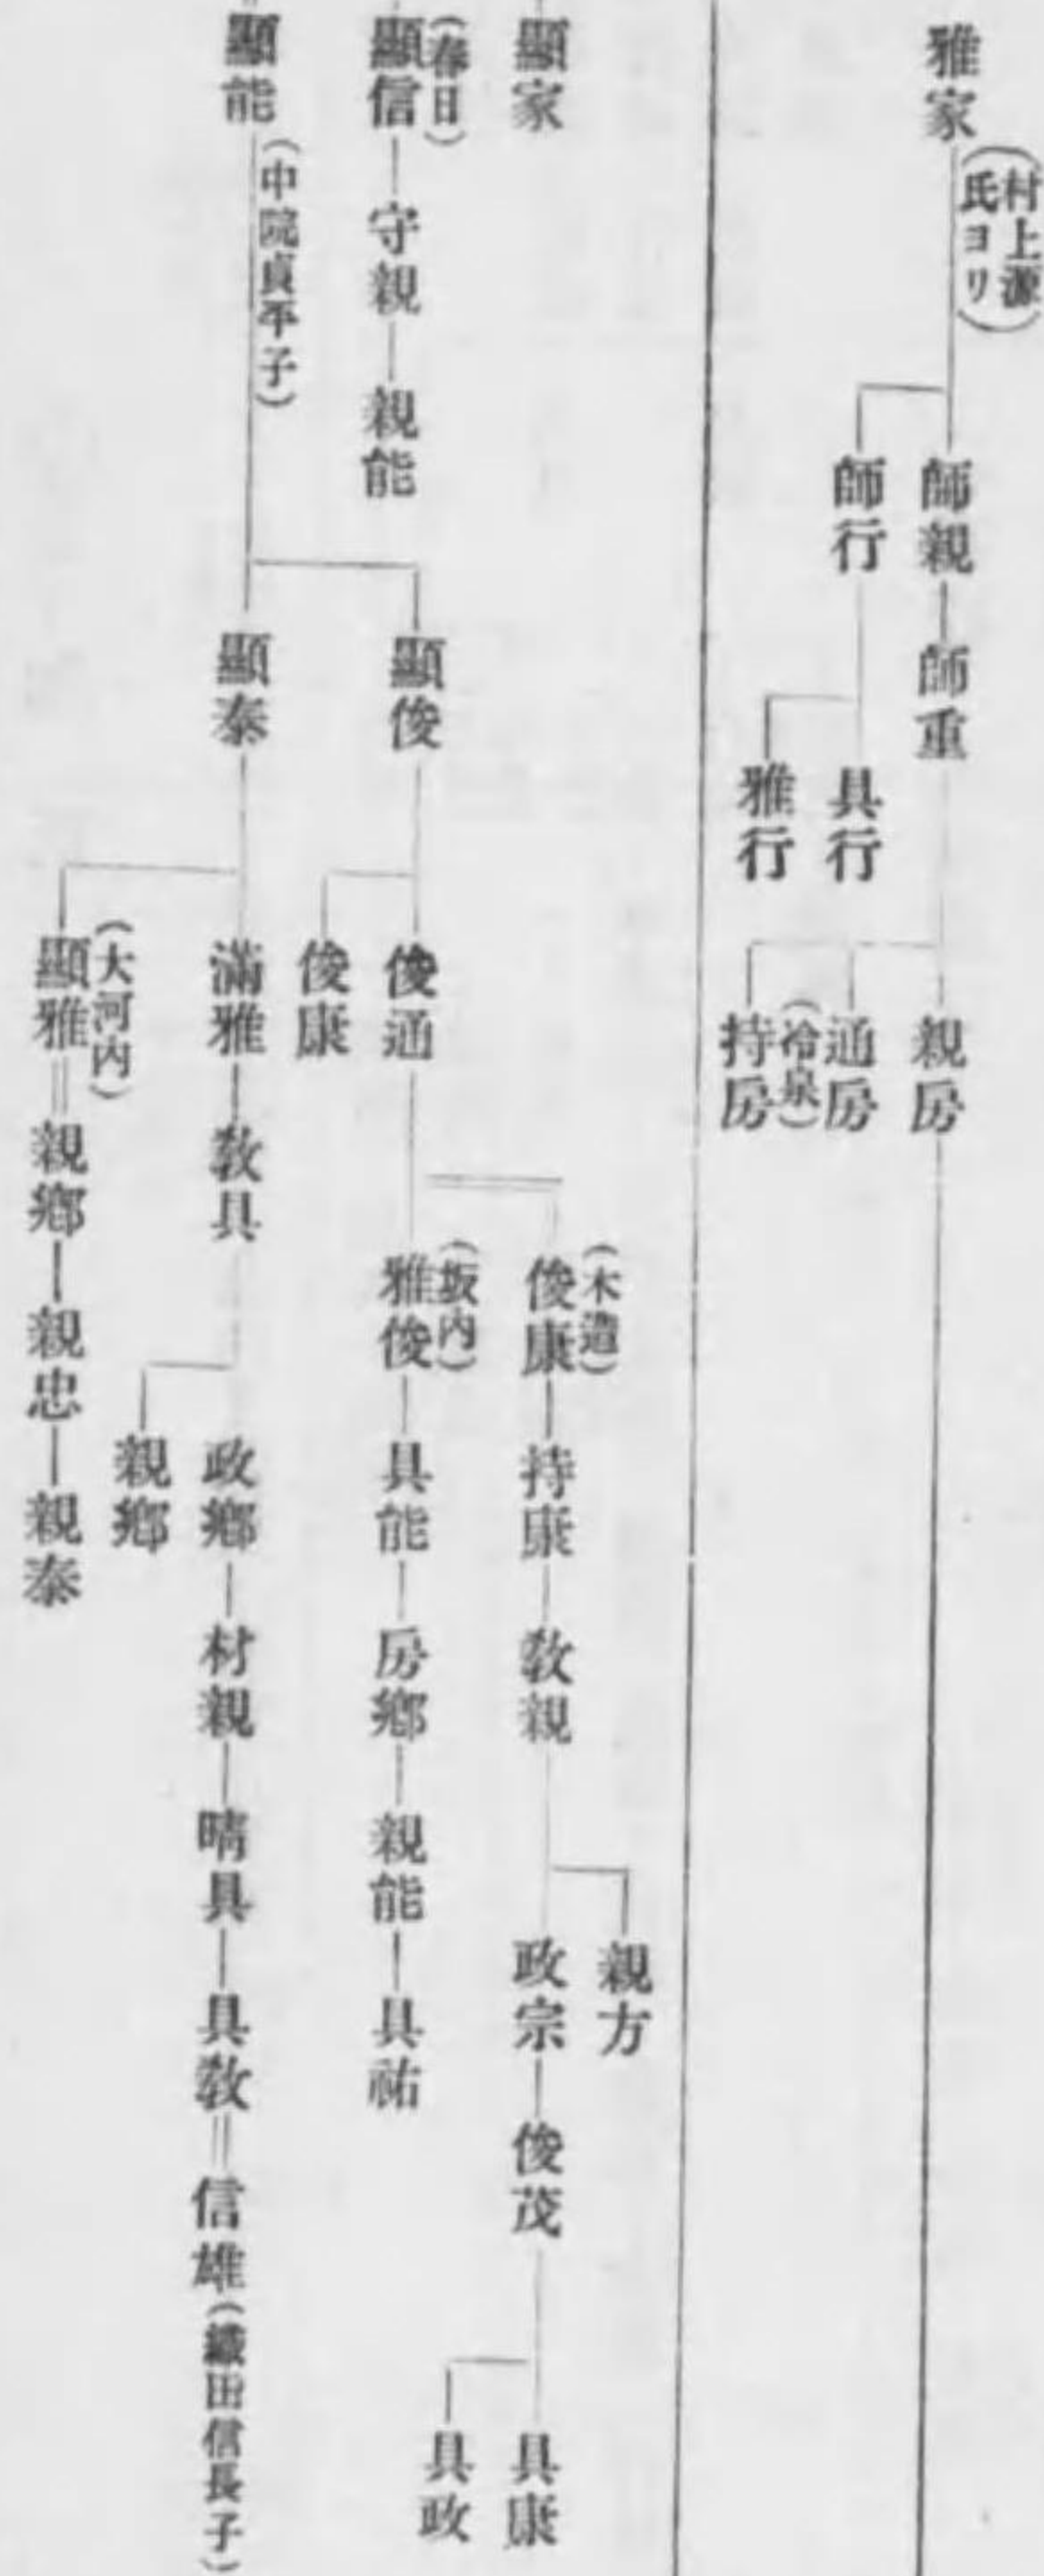 雅家
(村上源
氏ヨリ)
師親―師重
師行
具行
雅行
親房
通房
(冷泉)
持房
顯家
(春日)
顯信―守親―親能
顯能
(中院貞平子)
顯俊
顯泰
俊通
俊康
(木造)
俊康―持康―敎親
親方
政宗―俊茂
具康
具政
(坂内)
雅俊―具能―房鄕―親能―具祐
滿雅―敎具
政鄕―材親―晴具―具敎＝信雄(織田信長子)
親鄕
(大河内)
顯雅＝親鄕―親忠―親泰